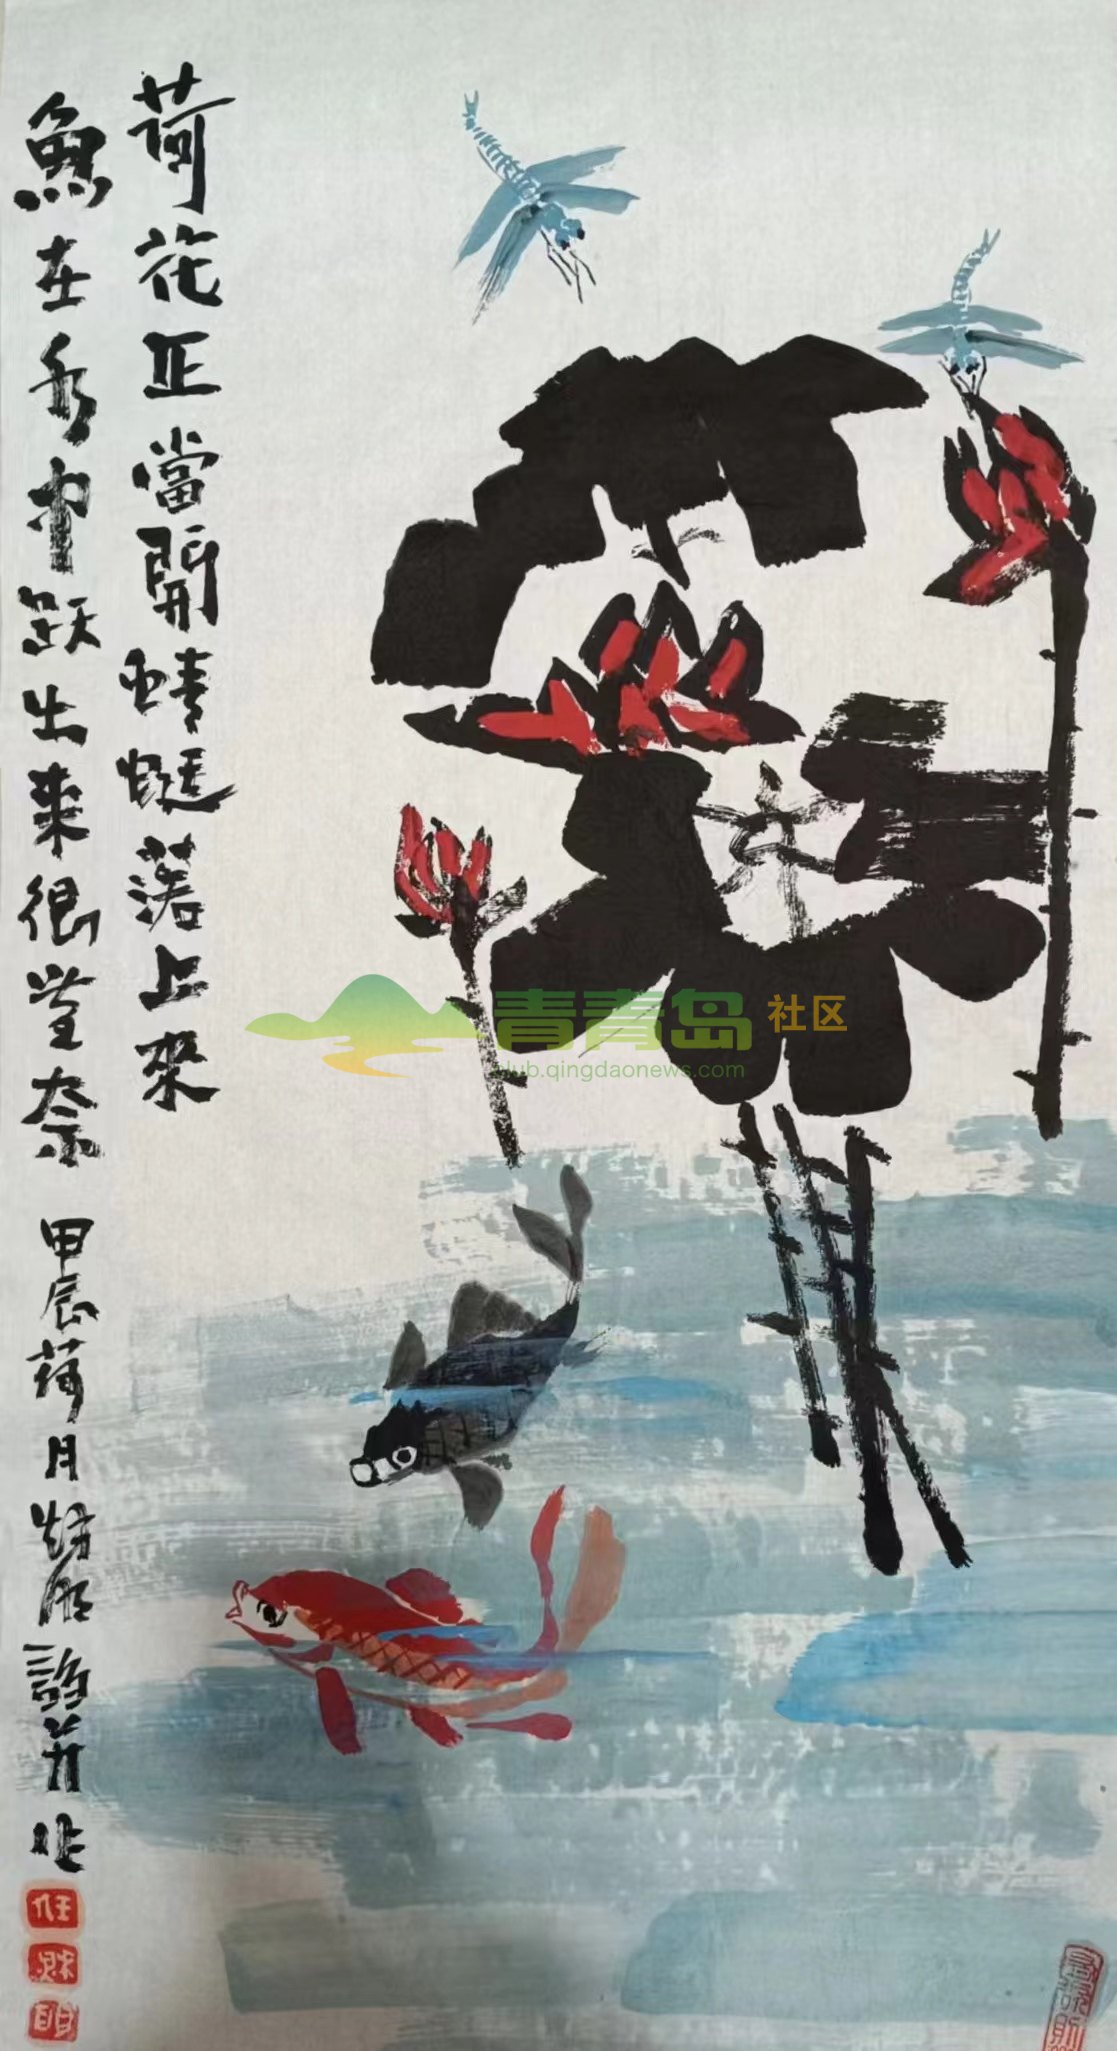 荷花正當開蜻蜓落上來
魚在水中跃出来很奈 甲辰荷月財明詩并作
任
財
明
青青岛社区
club.qingdaonews.com